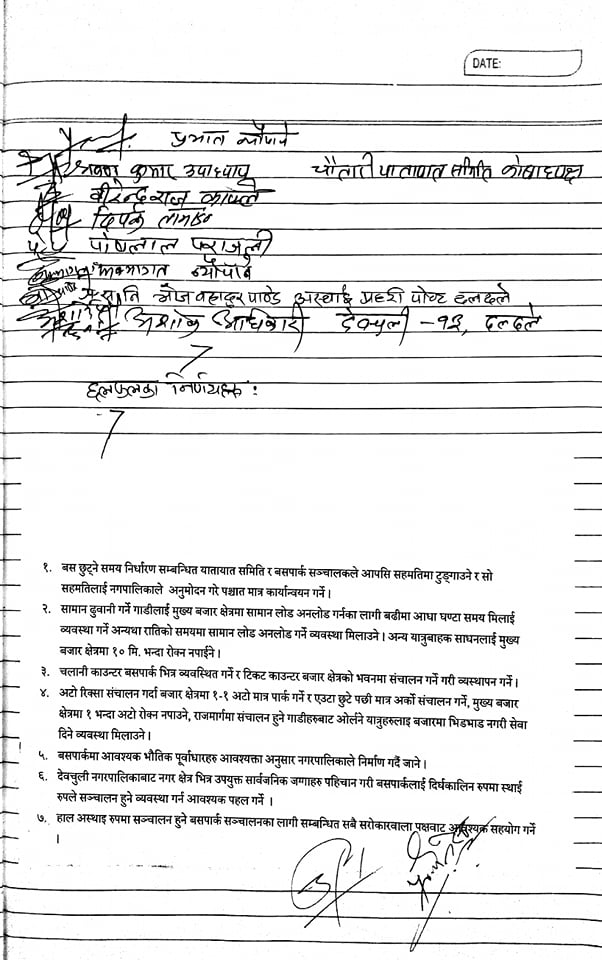 DATE:
प्रभात न्यौपाने
श्रवण कुमार उपाध्याय चौतारी यातायात समिति कोषाध्यक्ष
वीरेन्द्रराज काफ्ले
दिपक लामछाने
पोषलाल पराजुली
न्यौपाने
भोज बहादुर पाण्डे अस्थाई प्रहरी पोष्ट दलदले
अशोक अधिकारी देवचुली -१३, दलदले
छलफलका निर्णयहरू :
१. बस छुट्ने समय निर्धारण सम्बन्धित यातायात समिति र बसपार्क सञ्चालकले आपसि सहमतिमा टुङ्गाउने र सो
सहमतिलाई नगपालिकाले अनुमोदन गरे पश्चात मात्र कार्यान्वयन गर्ने।
२. सामान ढुवानी गर्ने गाडीलाई मुख्य बजार क्षेत्रमा सामान लोड अनलोड गर्नका लागी बढीमा आधा घण्टा समय मिलाई
व्यवस्था गर्ने अन्यथा रातिको समयमा सामान लोड अनलोड गर्ने व्यवस्था मिलाउने। अन्य यात्रुबाहक साधनलाई मुख्य
बजार क्षेत्रमा १० मि. भन्दा रोक्न नपाईने।
३. चलानी काउन्टर बसपार्क भित्र व्यवस्थित गर्ने र टिकट काउन्टर बजार क्षेत्रको भवनमा संचालन गर्ने गरी व्यस्थापन गर्ने।
४. अटो रिक्सा संचालन गर्दा बजार क्षेत्रमा १-१ अटो मात्र पार्क गर्ने र एउटा छुटे पछी मात्र अर्को संचालन गर्ने, मुख्य बजार
क्षेत्रमा १ भन्दा अटो रोक्न नपाउने, राजमार्गमा संचालन हुने गाडीहरुबाट ओर्लने यात्रुहरुलाइ बजारमा भिडभाड नगरी सेवा
दिने व्यवस्था मिलाउने।
५. बसपार्कमा आवश्यक भौतिक पूर्वाधारहरु आवश्यक्ता अनुसार नगरपालिकाले निर्माण गर्दै जाने।
६. देवचुली नगरपालिकाबाट नगर क्षेत्र भित्र उपयुक्त सार्वजनिक जग्गाहरु पहिचान गरी बसपार्कलाई दिर्घकालिन रुपमा स्थाई
रुपले सञ्चालन हुने व्यवस्था गर्न आवश्यक पहल गर्ने।
७. हाल अस्थाइ रुपमा सञ्चालन हुने बसपार्क सञ्चालनका लागी सम्बन्धित सबै सरोकारवाला पक्षवाट आवश्यक सहयोग गर्ने
।